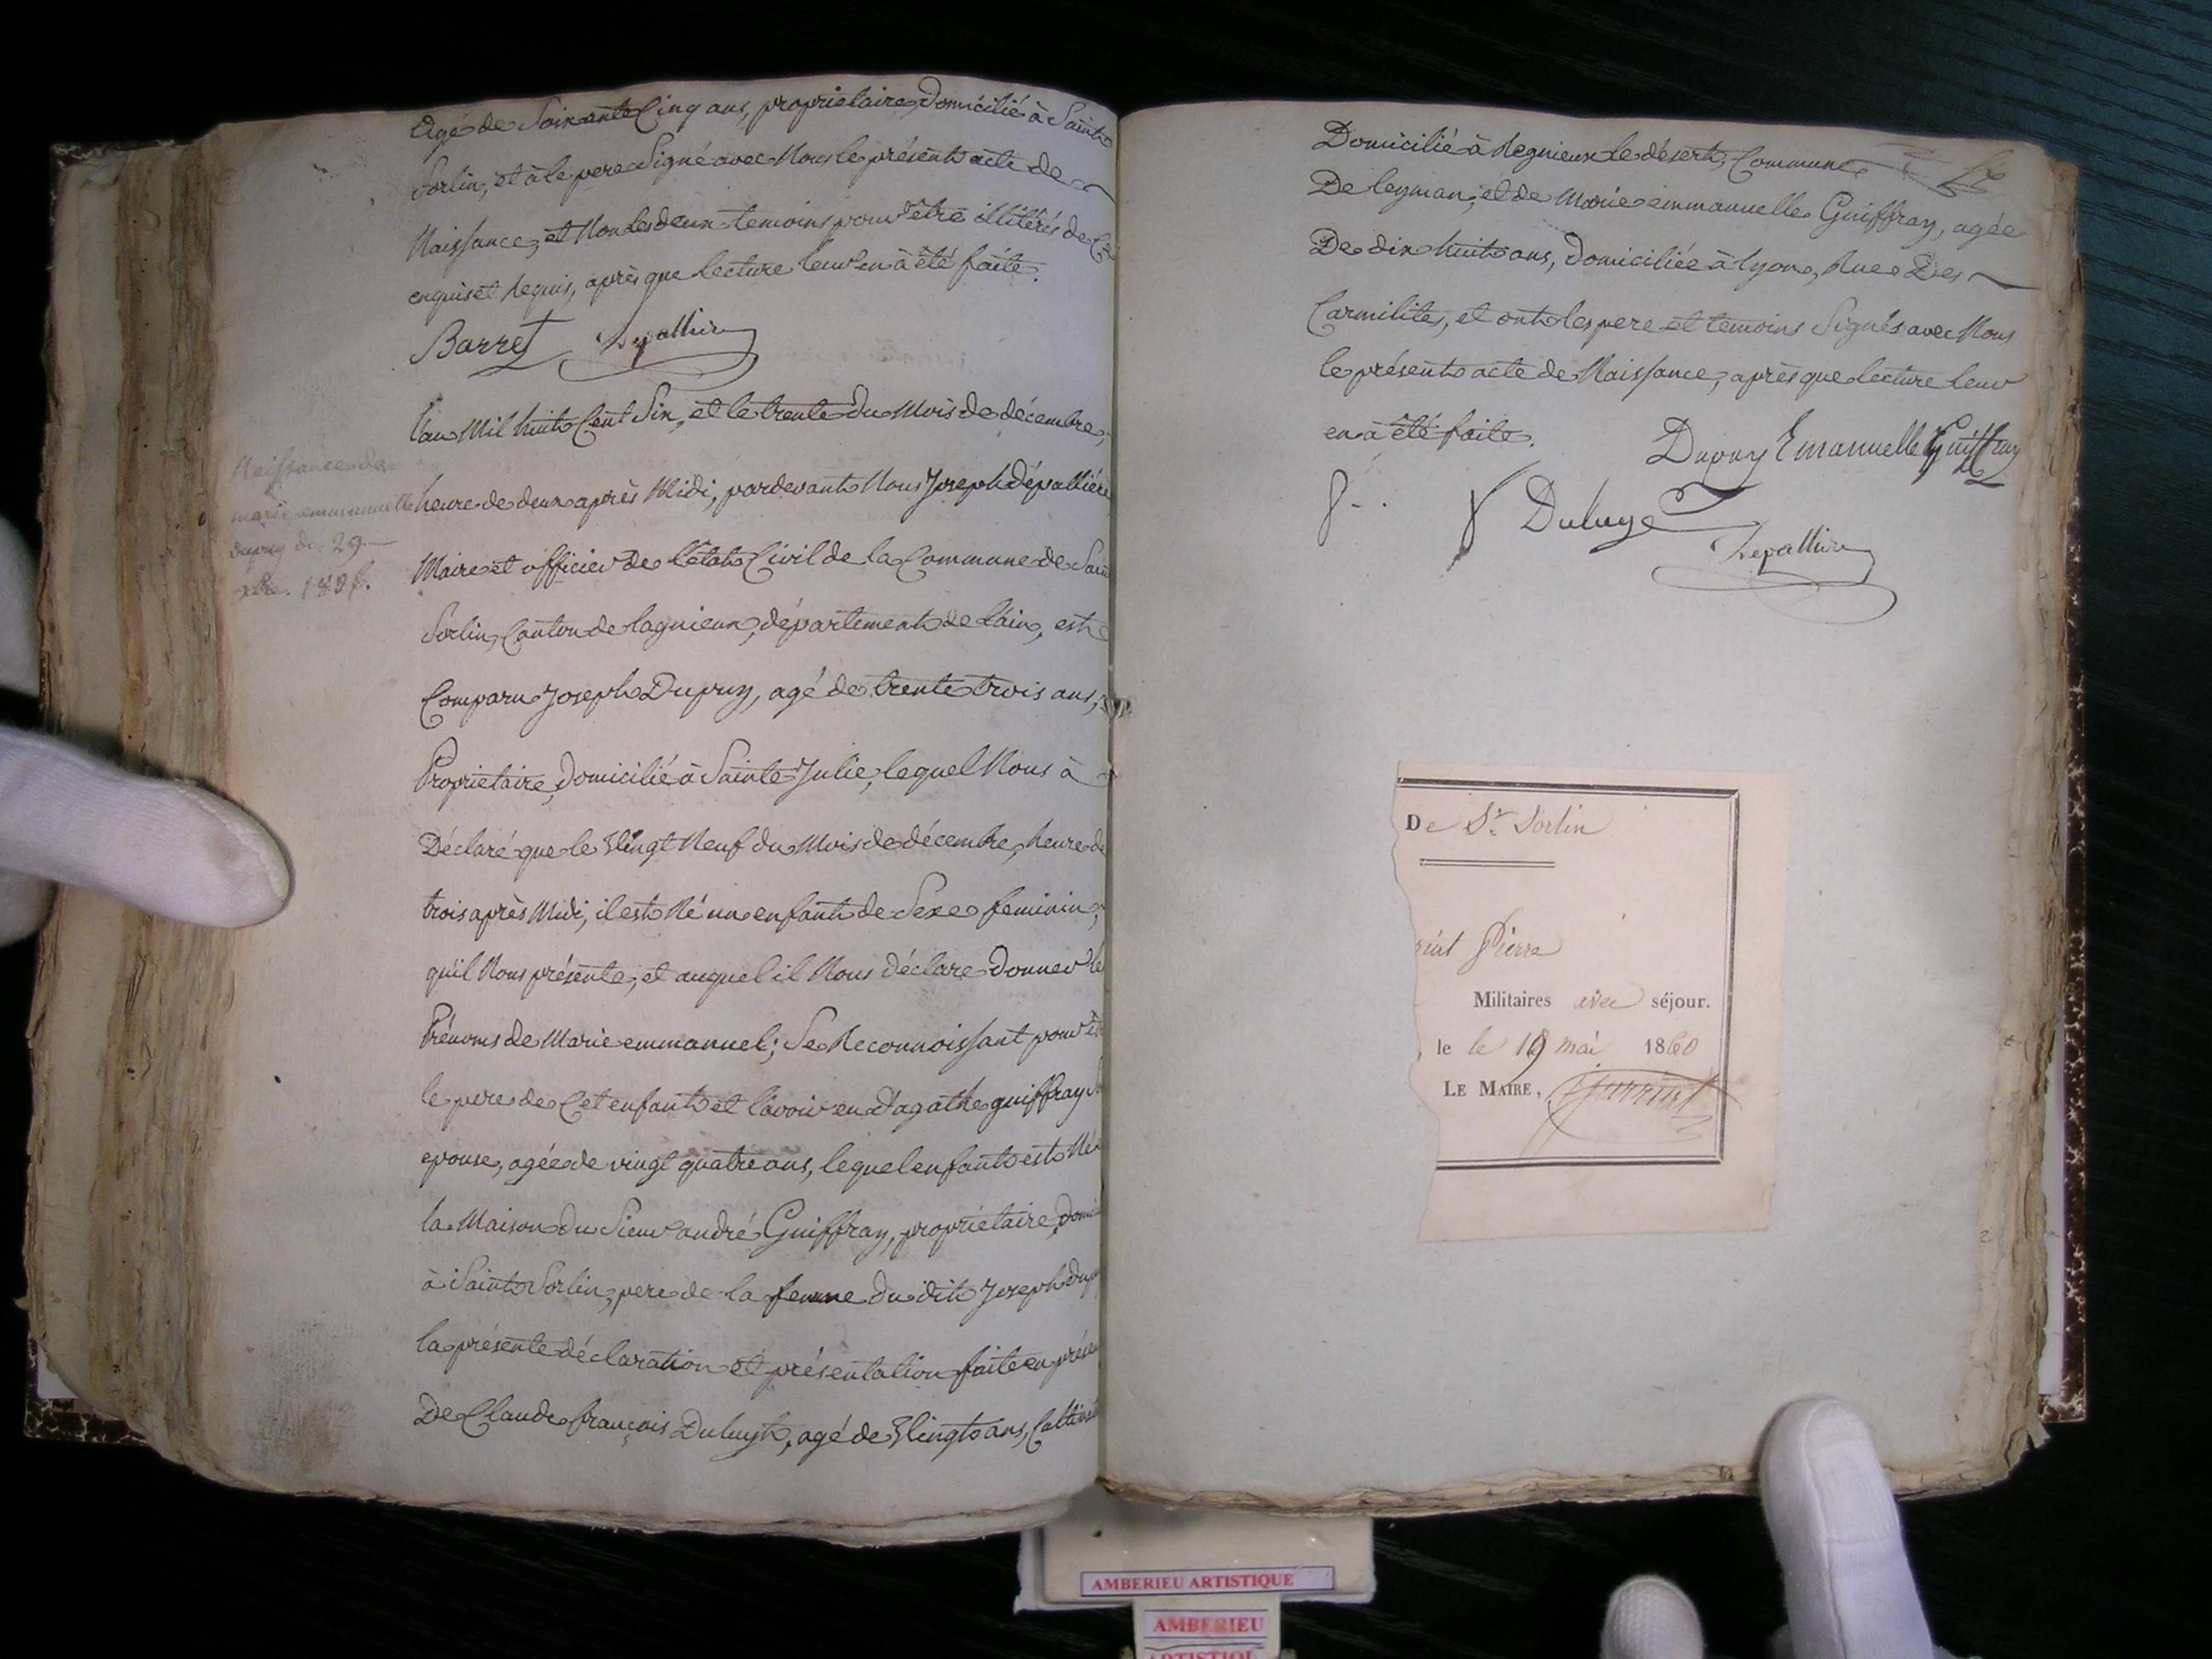 Agé de Soixante Cinq ans, proprietaire, domicilié à Saint
Sorlin, et à le pere Signé avec Nous le présent acte de
Naissance, et Non les deux temoins pour être illitérés de ce
enquis et Requis, après que lecture leur en à été faite.
Barret Depallière
L'an Mil huit Cent Six, et le trente du Mois de décembre,
Naissance de
marie emmanuelle
dupuy du 29
xbre. 1806.
heure de deux après Midi, pardevant Nous Joseph dépallière
Maire et officier de l'état Civil de la Commune de Saint
Sorlin, Canton de lagnieux, département de l'ain, est
Comparu Joseph Dupuy, agé de trente trois ans,
Proprietaire, domicilié à Sainte Julie, lequel Nous à
Déclaré que le Vingt Neuf du Mois de décembre, heure de
trois après Midi, il est Né un enfant de Sexe feminin,
qu'il Nous présente, et auquel il Nous déclare donner le
Prénoms de Marie emmanuel; Se Reconnoissant pour
le pere de Cet enfant et l'avoir eu d'agathe guiffray
epouse, agée de vingt quatre ans, lequel enfant est Né
la Maison du Sieur andré Guiffray, proprietaire,
à Saint Sorlin, pere de la femme du dit Joseph
la présente déclaration et présentation faite en
De Claude françois Duluyt, agé de Vingt ans,
Domicilié à Regnieux le désert, Commune
De leyman, et de Marie emmanuelle Guiffray, agée
De dix huit ans, domiciliée à lyon, Rue Des
Carmilites, et ont les pere et temoins Signés avec Nous
le présent acte de Naissance, après que lecture leur
en à été faite.
Dupuy Emanuelle Guiffray
Duluye
Depallière
De St. Sorlin
Pierre
Militaires avec séjour.
le le 19 mai 1860
LE MAIRE,
AMBERIEU ARTISTIQUE
AMBERIEU
ARTISTIQ